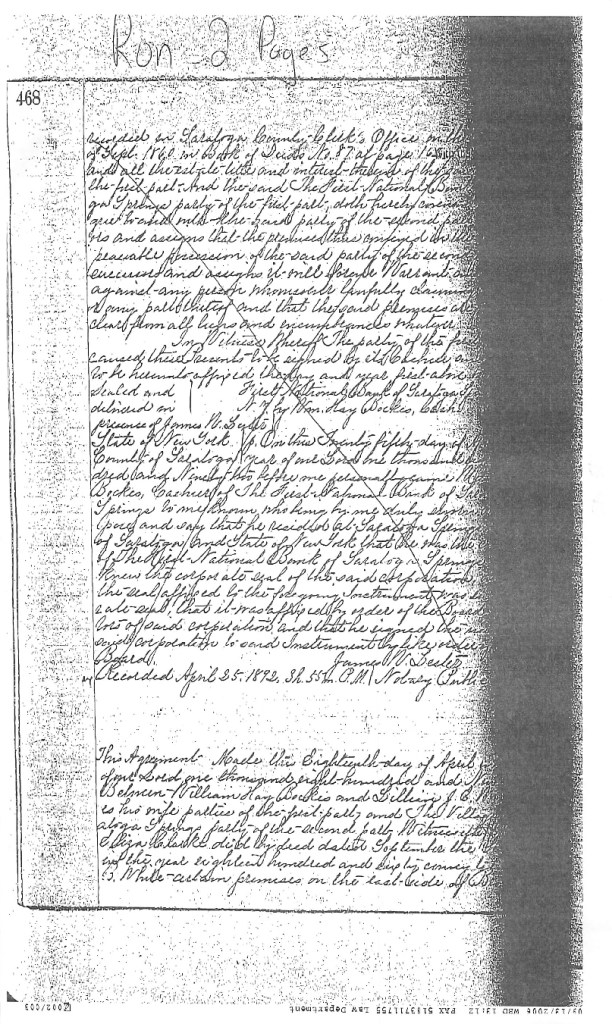 Ron - 2 Pages
468
recorded in Saratoga County Clerk's Office on the
of Sept. 1860 in Book of Deeds No. 87 at page
and all the estate title and interest therein of the
the first part. And the said The First National Ban
ga Springs party of the first part, doth hereby
to and with the said party of the second pa
ors and assigns that the premises thus conveyed in the
peaceable possession of the said party of the second
successors and assigns it will forever Warrant
against any person whomsoever lawfully claimin
or any part thereof and that the said premises
clear from all liens and incumbrances whatever
In Witness Whereof The party of the fir
caused these Presents to be signed by its Cashier
to be hereunto affixed the day and year first above
Sealed and First National Bank of Saratoga
delivered in N.Y. by Wm. Hay Bockes, Cash
presence of James N. Lester
State of New York On this Twenty fifth day of
County of Saratoga year of our Lord one thousand
dred and Ninety two before me personally came
Bockes, Cashier of The First National Bank of
Springs to me known, who being by me duly
and say that he resided at Saratoga Spring
of Saratoga and State of New York that he was the
of The First National Bank of Saratoga Springs
knew the corporate seal of the said corporation
the seal affixed to the foregoing Instrument was
rate seal, that it was affixed by order of the Board
tors of said corporation, and that he signed the
said corporation to said Instrument by like order
Board. James N. Lester
Recorded April 25. 1892, 3h 55m P.M. Notary Public
This Agreement Made the Eighteenth day of April
of our Lord one thousand eight hundred and
Between William Hay Bockes and Lillian J. C.
es his wife parties of the first part, and The Villa
atoga Springs party of the second part, Witnesseth
Eliza Clarke did by deed dated September the
of the year eighteen hundred and sixty convey
certain premises on the east side of
002/003
FAX 5183711755 Law Department
09/13/2006 WED 13:12